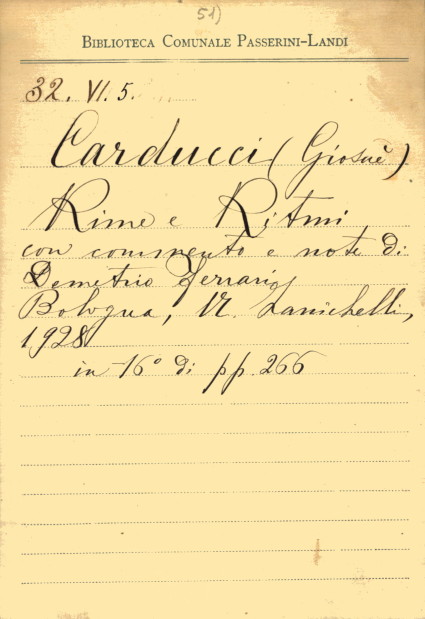 51)
BIBLIOTECA COMUNALE PASSERINI-LANDI
32. VI. 5.
Carducci (Giosuè)
Rime e Ritmi
con commento e note di
Demetrio Ferrari
Bologna, N. Zanichelli,
1928
in 16° di pp. 266